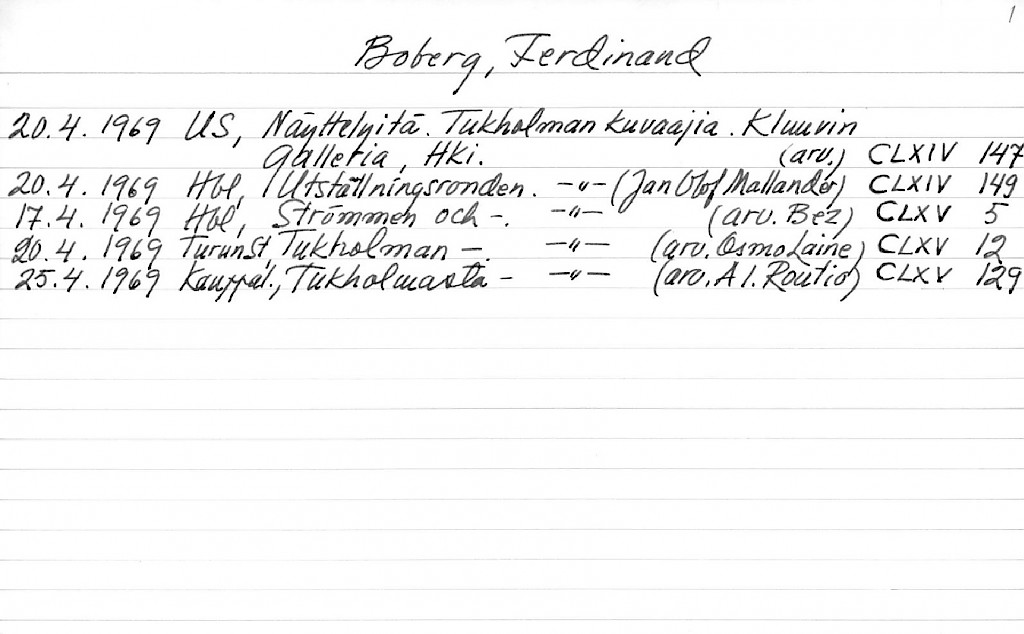 1
Boberg, Ferdinand
20.4. 1969 US, Näyttelyitä. Tukholman kuvaajia. Kluuvin
Galleria, Hki. (arv.) CLXIV 147
20.4. 1969 Hbl, Utställningsronden. —"— (Jan Olof Mallander) CLXIV 149
17.4. 1969 Hbl, Strömmen och -. —"— (arv. Bez) CLXV 5
20.4. 1969 TurunSt, Tukholman — —"— (arv. Osmo Laine) CLXV 12
25.4. 1969 Kauppal., Tukholmasta - —"— (arv. A I. Routio) CLXV 129